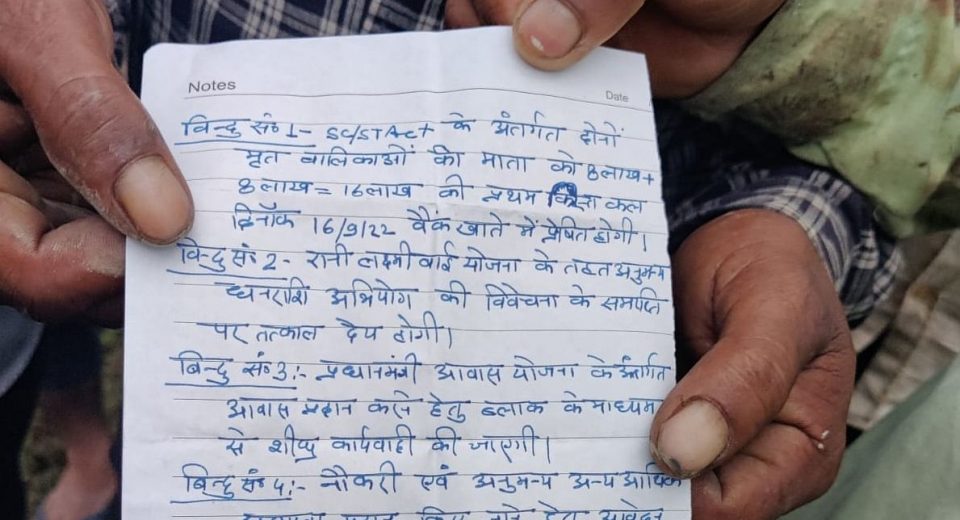 Notes
Date
बिन्दु सं० 1- SC/ST Act के अंतर्गत दोनों
मृत बालिकाओं की माता को 8 लाख +
8 लाख = 16 लाख की प्रथम किस्त कल
दिनाँक 16/9/22 बैंक खाते में प्रेषित होगी।
बिन्दु सं० 2- रानी लक्ष्मी बाई योजना के तहत अनुमन्य
धनराशि अभियोग की विवेचना के समाप्ति
पर तत्काल देय होगी।
बिन्दु सं० 3:- प्रधानमंत्री आवास योजना के अंर्तगत
आवास प्रदान करने हेतु ब्लाक के माध्यम
से शीघ्र कार्यवाही की जाएगी।
बिन्दु सं० 4:- नौकरी एवं अनुमन्य अन्य आर्थिक
प्रदान किए जाने हेतु आवेदन